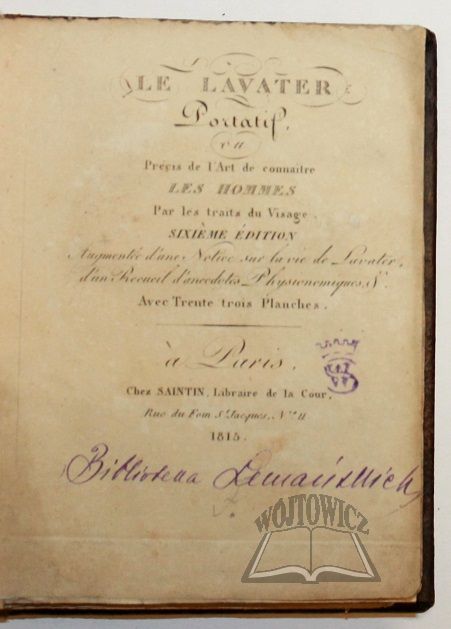 LE LAVATER
Portatif,
ou
Précis de l'Art de connaître
LES HOMMES
Par les traits du Visage.
SIXIÈME ÉDITION
Augmentée d'une Notice sur la vie de Lavater,
d'un Recueil d'anecdotes Physionomiques, &.
Avec Trente trois Planches.
à Paris,
Chez SAINTIN, Libraire de la Cour,
Rue du Foin St Jacques, N.º 11
1815.
Biblioteka
WÓJTOWICZ